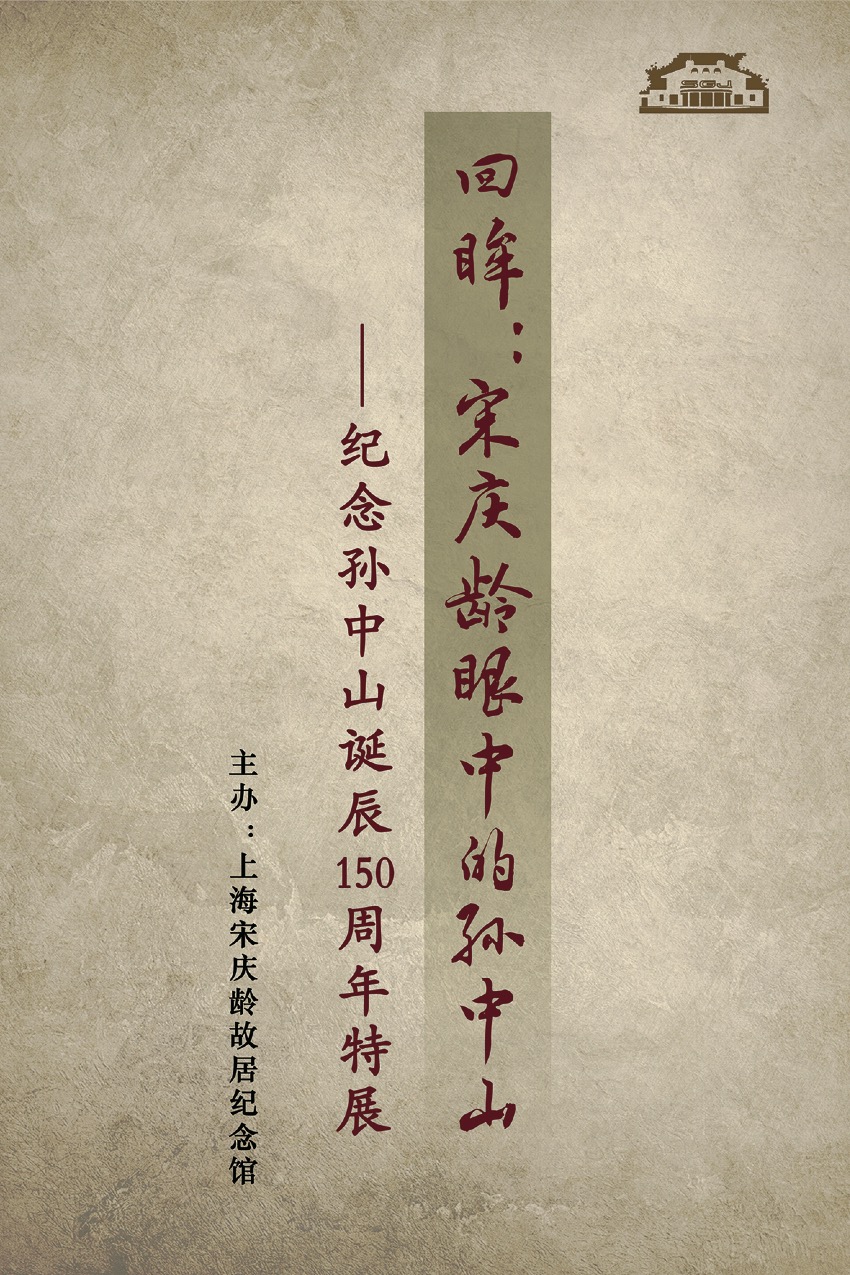 SGJ
回眸：宋庆龄眼中的孙中山
——纪念孙中山诞辰150周年特展
主办：上海宋庆龄故居纪念馆